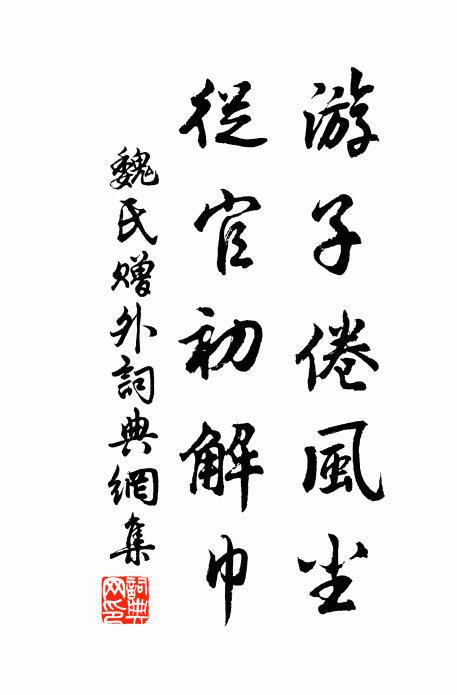 游子倦風塵
從官初解巾
魏氏贈外詞典網集
詞典网印